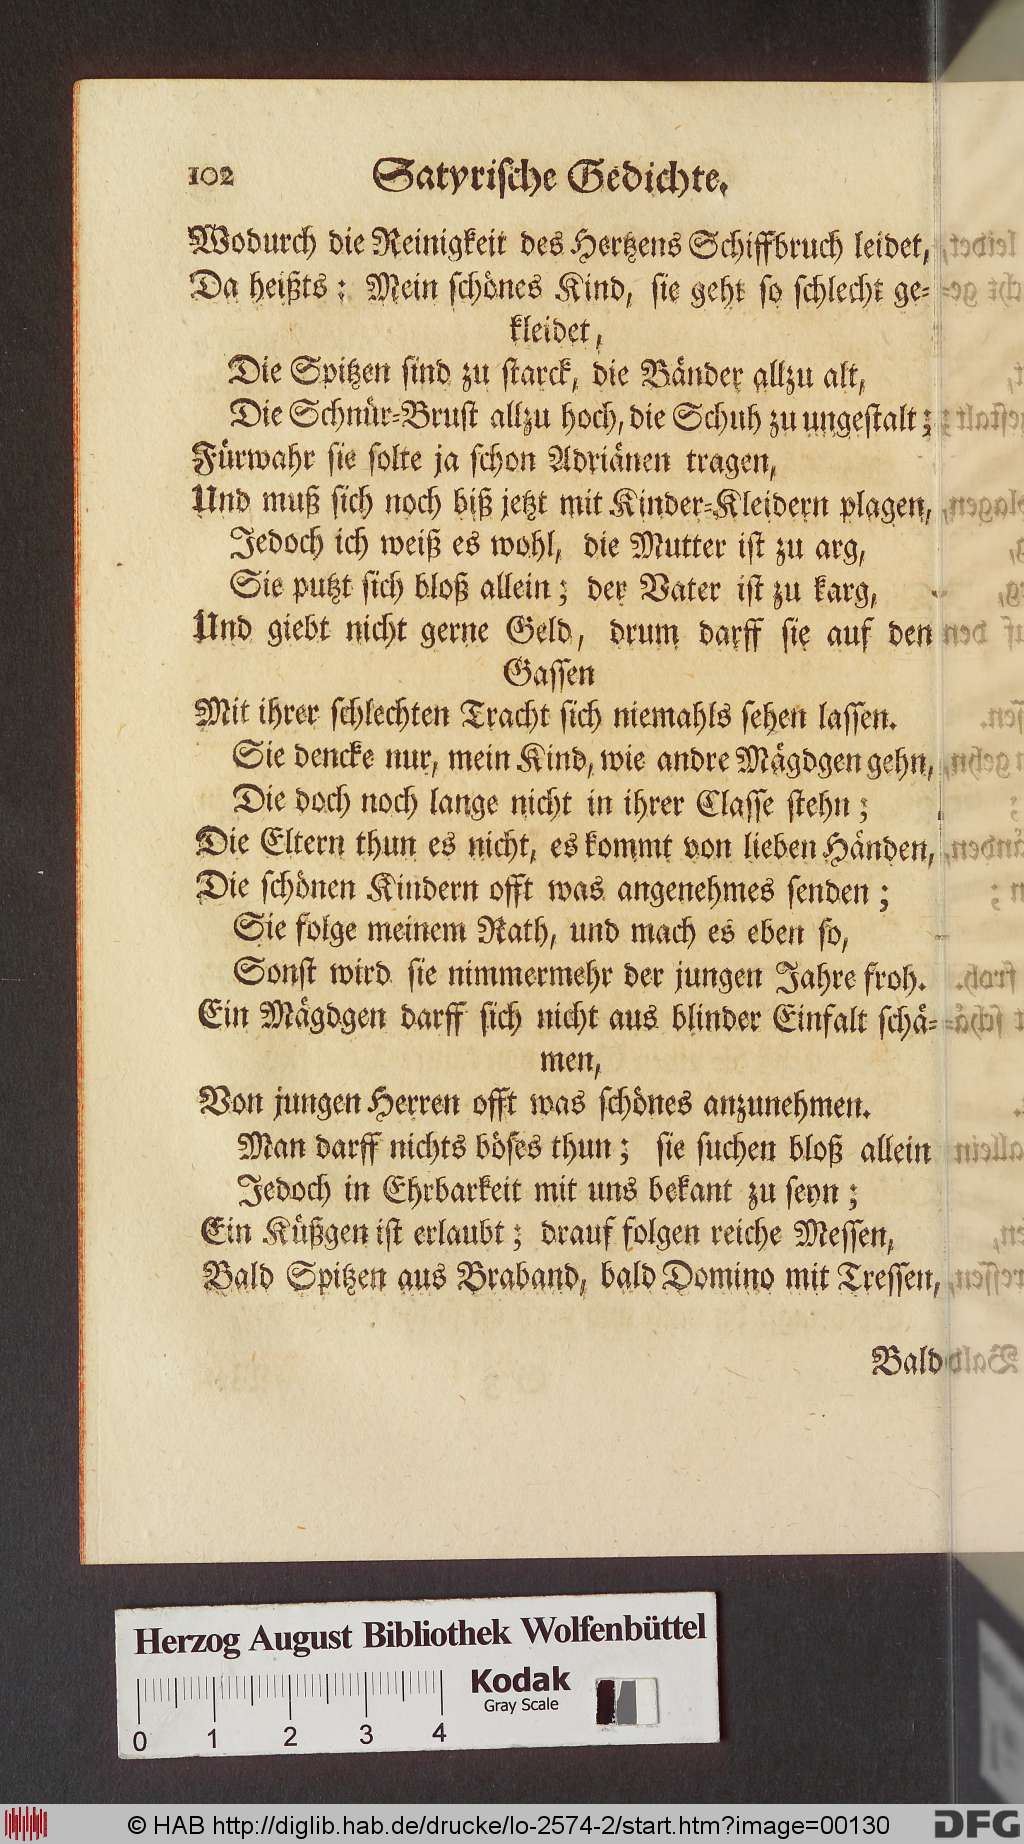 102 Satyrische Gedichte.
Wodurch die Reinigkeit des Hertzens Schiffbruch leidet,
Da heißts: Mein schönes Kind, sie geht so schlecht ge-
kleidet,
Die Spitzen sind zu starck, die Bänder allzu alt,
Die Schnür-Brust allzu hoch, die Schuh zu ungestalt;
Fürwahr sie solte ja schon Adriänen tragen,
Und muß sich noch biß jetzt mit Kinder-Kleidern plagen,
Jedoch ich weiß es wohl, die Mutter ist zu arg,
Sie putzt sich bloß allein; der Vater ist zu karg,
Und giebt nicht gerne Geld, drum darff sie auf den
Gassen
Mit ihrer schlechten Tracht sich niemahls sehen lassen.
Sie dencke nur, mein Kind, wie andre Mägdgen gehn,
Die doch noch lange nicht in ihrer Classe stehn;
Die Eltern thun es nicht, es kommt von lieben Händen,
Die schönen Kindern offt was angenehmes senden;
Sie folge meinem Rath, und mach es eben so,
Sonst wird sie nimmermehr der jungen Jahre froh.
Ein Mägdgen darff sich nicht aus blinder Einfalt schä-
men,
Von jungen Herren offt was schönes anzunehmen.
Man darff nichts böses thun; sie suchen bloß allein
Jedoch in Ehrbarkeit mit uns bekant zu seyn;
Ein Küßgen ist erlaubt; drauf folgen reiche Messen,
Bald Spitzen aus Braband, bald Domino mit Tressen,
Bald
Herzog August Bibliothek Wolfenbüttel
Kodak
Gray Scale
0 1 2 3 4
© HAB http://diglib.hab.de/drucke/lo-2574-2/start.htm?image=00130
DFG